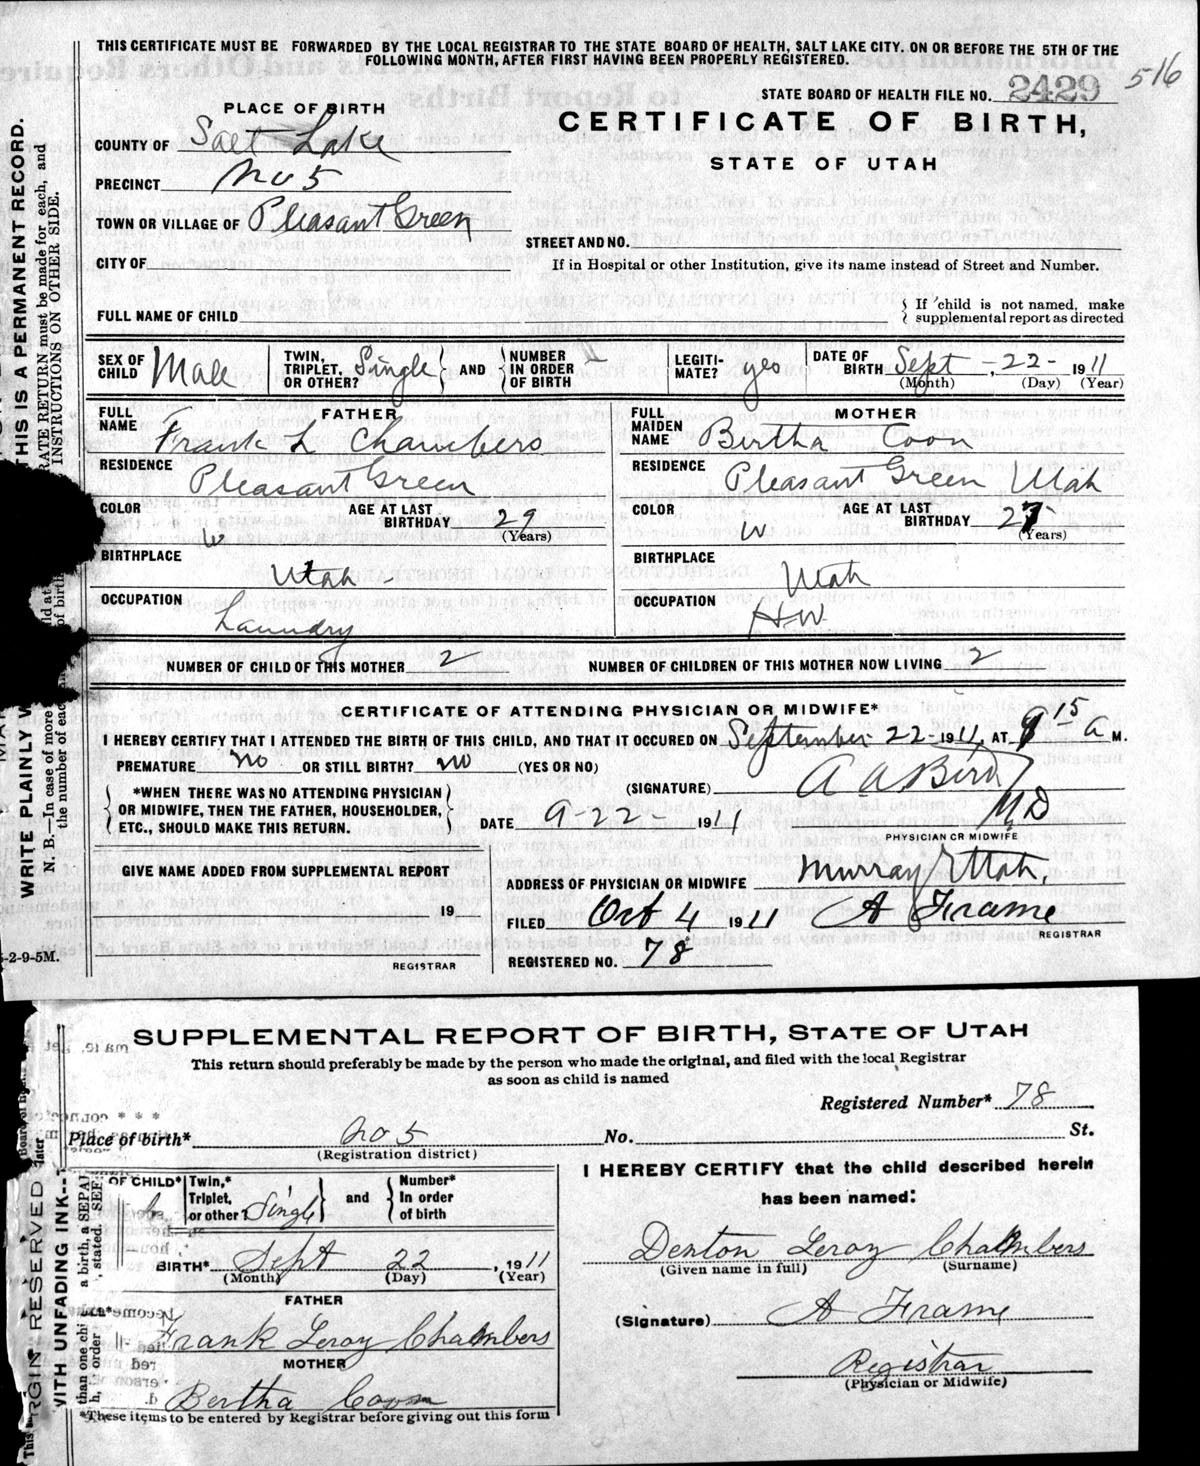 THIS CERTIFICATE MUST BE FORWARDED BY THE LOCAL REGISTRAR TO THE STATE BOARD OF HEALTH, SALT LAKE CITY. ON OR BEFORE THE 5TH OF THE
FOLLOWING MONTH, AFTER FIRST HAVING BEEN PROPERLY REGISTERED.
516
STATE BOARD OF HEALTH FILE NO. 2429
PLACE OF BIRTH
CERTIFICATE OF BIRTH,
STATE OF UTAH
COUNTY OF Salt Lake
PRECINCT No 5
TOWN OR VILLAGE OF Pleasant Green
STREET AND NO.
CITY OF
If in Hospital or other Institution, give its name instead of Street and Number.
FULL NAME OF CHILD
If child is not named, make
supplemental report as directed
SEX OF CHILD Male
TWIN, TRIPLET, OR OTHER? Single AND NUMBER IN ORDER OF BIRTH
LEGITI-MATE? yes
DATE OF BIRTH Sept - 22 - 1911
(Month) (Day) (Year)
FATHER
FULL NAME Frank L Chambers
RESIDENCE Pleasant Green
COLOR W
AGE AT LAST BIRTHDAY 29 (Years)
BIRTHPLACE Utah -
OCCUPATION Laundry
MOTHER
FULL MAIDEN NAME Birtha Coon
RESIDENCE Pleasant Green Utah
COLOR W
AGE AT LAST BIRTHDAY 27 (Years)
BIRTHPLACE Utah
OCCUPATION H-W
NUMBER OF CHILD OF THIS MOTHER 2
NUMBER OF CHILDREN OF THIS MOTHER NOW LIVING 2
CERTIFICATE OF ATTENDING PHYSICIAN OR MIDWIFE*
I HEREBY CERTIFY THAT I ATTENDED THE BIRTH OF THIS CHILD, AND THAT IT OCCURED ON September 22-1911, AT 9 15 a M.
PREMATURE no OR STILL BIRTH? no (YES OR NO)
*WHEN THERE WAS NO ATTENDING PHYSICIAN
OR MIDWIFE, THEN THE FATHER, HOUSEHOLDER,
ETC., SHOULD MAKE THIS RETURN.
(SIGNATURE) A A Bird
MD
DATE 9-22- 1911
PHYSICIAN OR MIDWIFE
GIVE NAME ADDED FROM SUPPLEMENTAL REPORT
19
REGISTRAR
ADDRESS OF PHYSICIAN OR MIDWIFE Murray Utah,
FILED Oct 4 1911 A Frame
REGISTRAR
REGISTERED NO. 78
-2-9-5M.
THIS IS A PERMANENT RECORD.
RATE RETURN must be made for each, and
INSTRUCTIONS ON OTHER SIDE.
WRITE PLAINLY W
N. B.—In case of more
the number of each
SUPPLEMENTAL REPORT OF BIRTH, STATE OF UTAH
This return should preferably be made by the person who made the original, and filed with the local Registrar
as soon as child is named
Registered Number* 78
Place of birth* No 5 No. St.
(Registration district)
OF CHILD*
Twin,* Triplet, or other? Single and Number* In order of birth
BIRTH* Sept 22, 1911
(Month) (Day) (Year)
FATHER
Frank Leroy Chambers
MOTHER
Bertha Coon
*These items to be entered by Registrar before giving out this form
I HEREBY CERTIFY that the child described herein
has been named:
Denton Leroy Chambers
(Given name in full) (Surname)
(Signature) A Frame
Registrar
(Physician or Midwife)
RGIN RESERVED
WITH UNFADING INK--